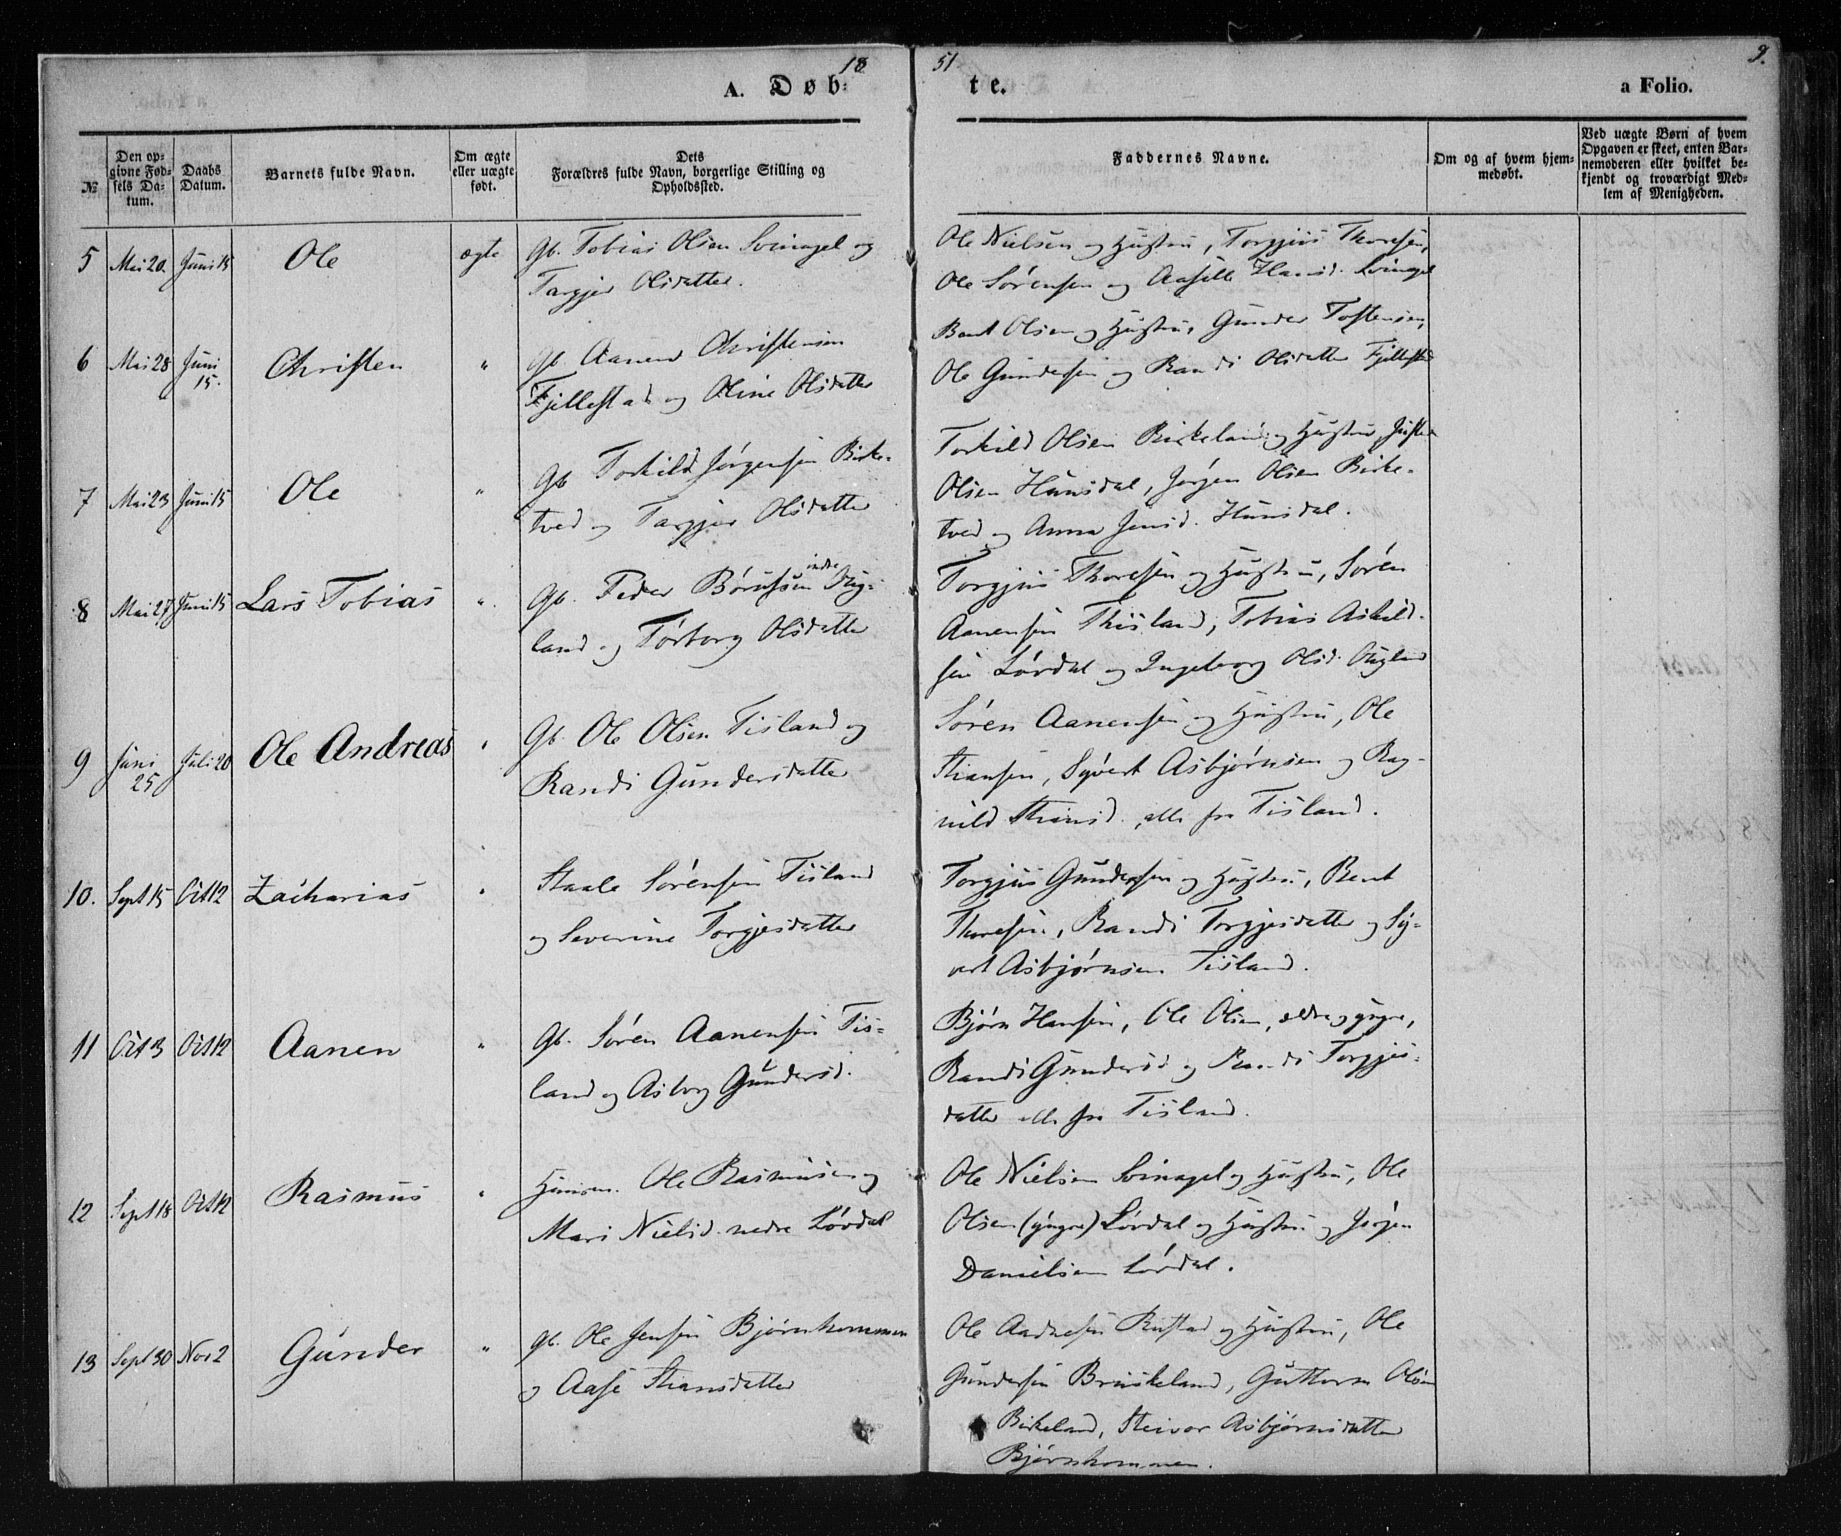 18 51 9.
A. Døb: te. a Folio.
№ Den opgivne Fødsels Datum. Daabs Datum. Barnets fulde Navn. Om ægte eller uægte født. Dets Forældres fulde Navn, borgerlige Stilling og Opholdssted. Faddernes Navne. Om og af hvem hjemmedøbt. Ved uægte Børn af hvem Opgaven er skeet, enten Barnemoderen eller hvilket bekjendt og troværdigt Medlem af Menigheden.
5 Mai 20. Juni 15 Ole ægte Gb. Tobias Olsen Svinagel og
Targjer Olsdatter.
Ole Nielsen og Hustru, Torgjus Thoresen,
Ole Sørensen og Hansd. Svinagel
6 Mai 28 Juni 15. Christen " Gb. Aanen Christensen
Fjellestad og Oline Olsdatter
Bent Olsen og Hustru, Gunder Tostensen,
Ole Gundersen og Randi Olsdatter Fjellestad
7 Mai 23 Juni 15 Ole " Gb Torkild Jørgensen Birke-
tved og Targjer Olsdatter
Torkild Olsen Birkeland og Hustru,
Olsen Hunsdal, Jørgen Olsen Birke-
tved og Anna Jensd. Hunsdal.
8 Mai 27 Juni 15 Lars Tobias " Gb. Peder Børufsen indre Aug-
land og Torborg Olsdatter
Torgjus Thoresen og Hustru, Søren
Aanensen Thisland, Tobias Askild-
sen Løvdal og Ingeborg Olsd. Augland
9 Juni 25 Juli 20 Ole Andreas " Gb. Ole Olsen Tisland og
Randi Gundersdatter
Søren Aanensen og Hustru, Ole
Stiansen, Syvert Asbjørnsen og Rag-
nild Stiansd. alle fra Tisland.
10. Sept 15 Oct 12 Zacharias " Staale Sørensen Tisland
og Severine Torgjesdatter
Torgjus Gundersen og Hustru, Bent
Thoresen, Randi Torgjesdatter og Sy-
vert Asbjørnsen Tisland.
11 Oct 3 Oct 12 Aanen " Gb. Søren Aanensen Tis-
land og Asborg Gundersd.
Bjørn Hansen, Ole Olsen, ældre og yngre,
Randi Gundersd og Randi Torgjes-
datter alle fra Tisland.
12 Sept 18 Oct 12 Rasmus " Huusm. Ole Rasmusen og
Mari Nielsd. nedre Løvdal
Ole Nielsen Svinagel og Hustru, Ole
Olsen (yngre) Løvdal og Hustru og Jørgen
Danielsen Løvdal.
13 Sept 30 Nov 2 Gunder " Gb. Ole Jensen Bjørnkommen
og Aase Stiansdatter
Ole Aadnesen Rustad og Hustru, Ole
Gundersen Bruskeland, Guttorm Olsen
Birkeland, Steinvor Asbjørnsdatter
Bjørnkommen.